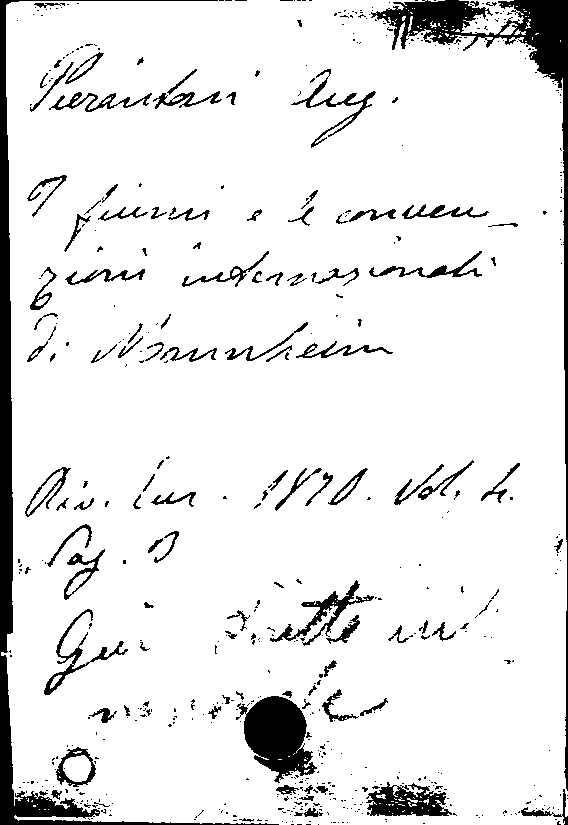 Pierantoni Aug.
I fiumi e le conven_
zioni internazionali
di Mannheim
Riv. Eur. 1870. Vol. 4.
Pag. 3
Diritto